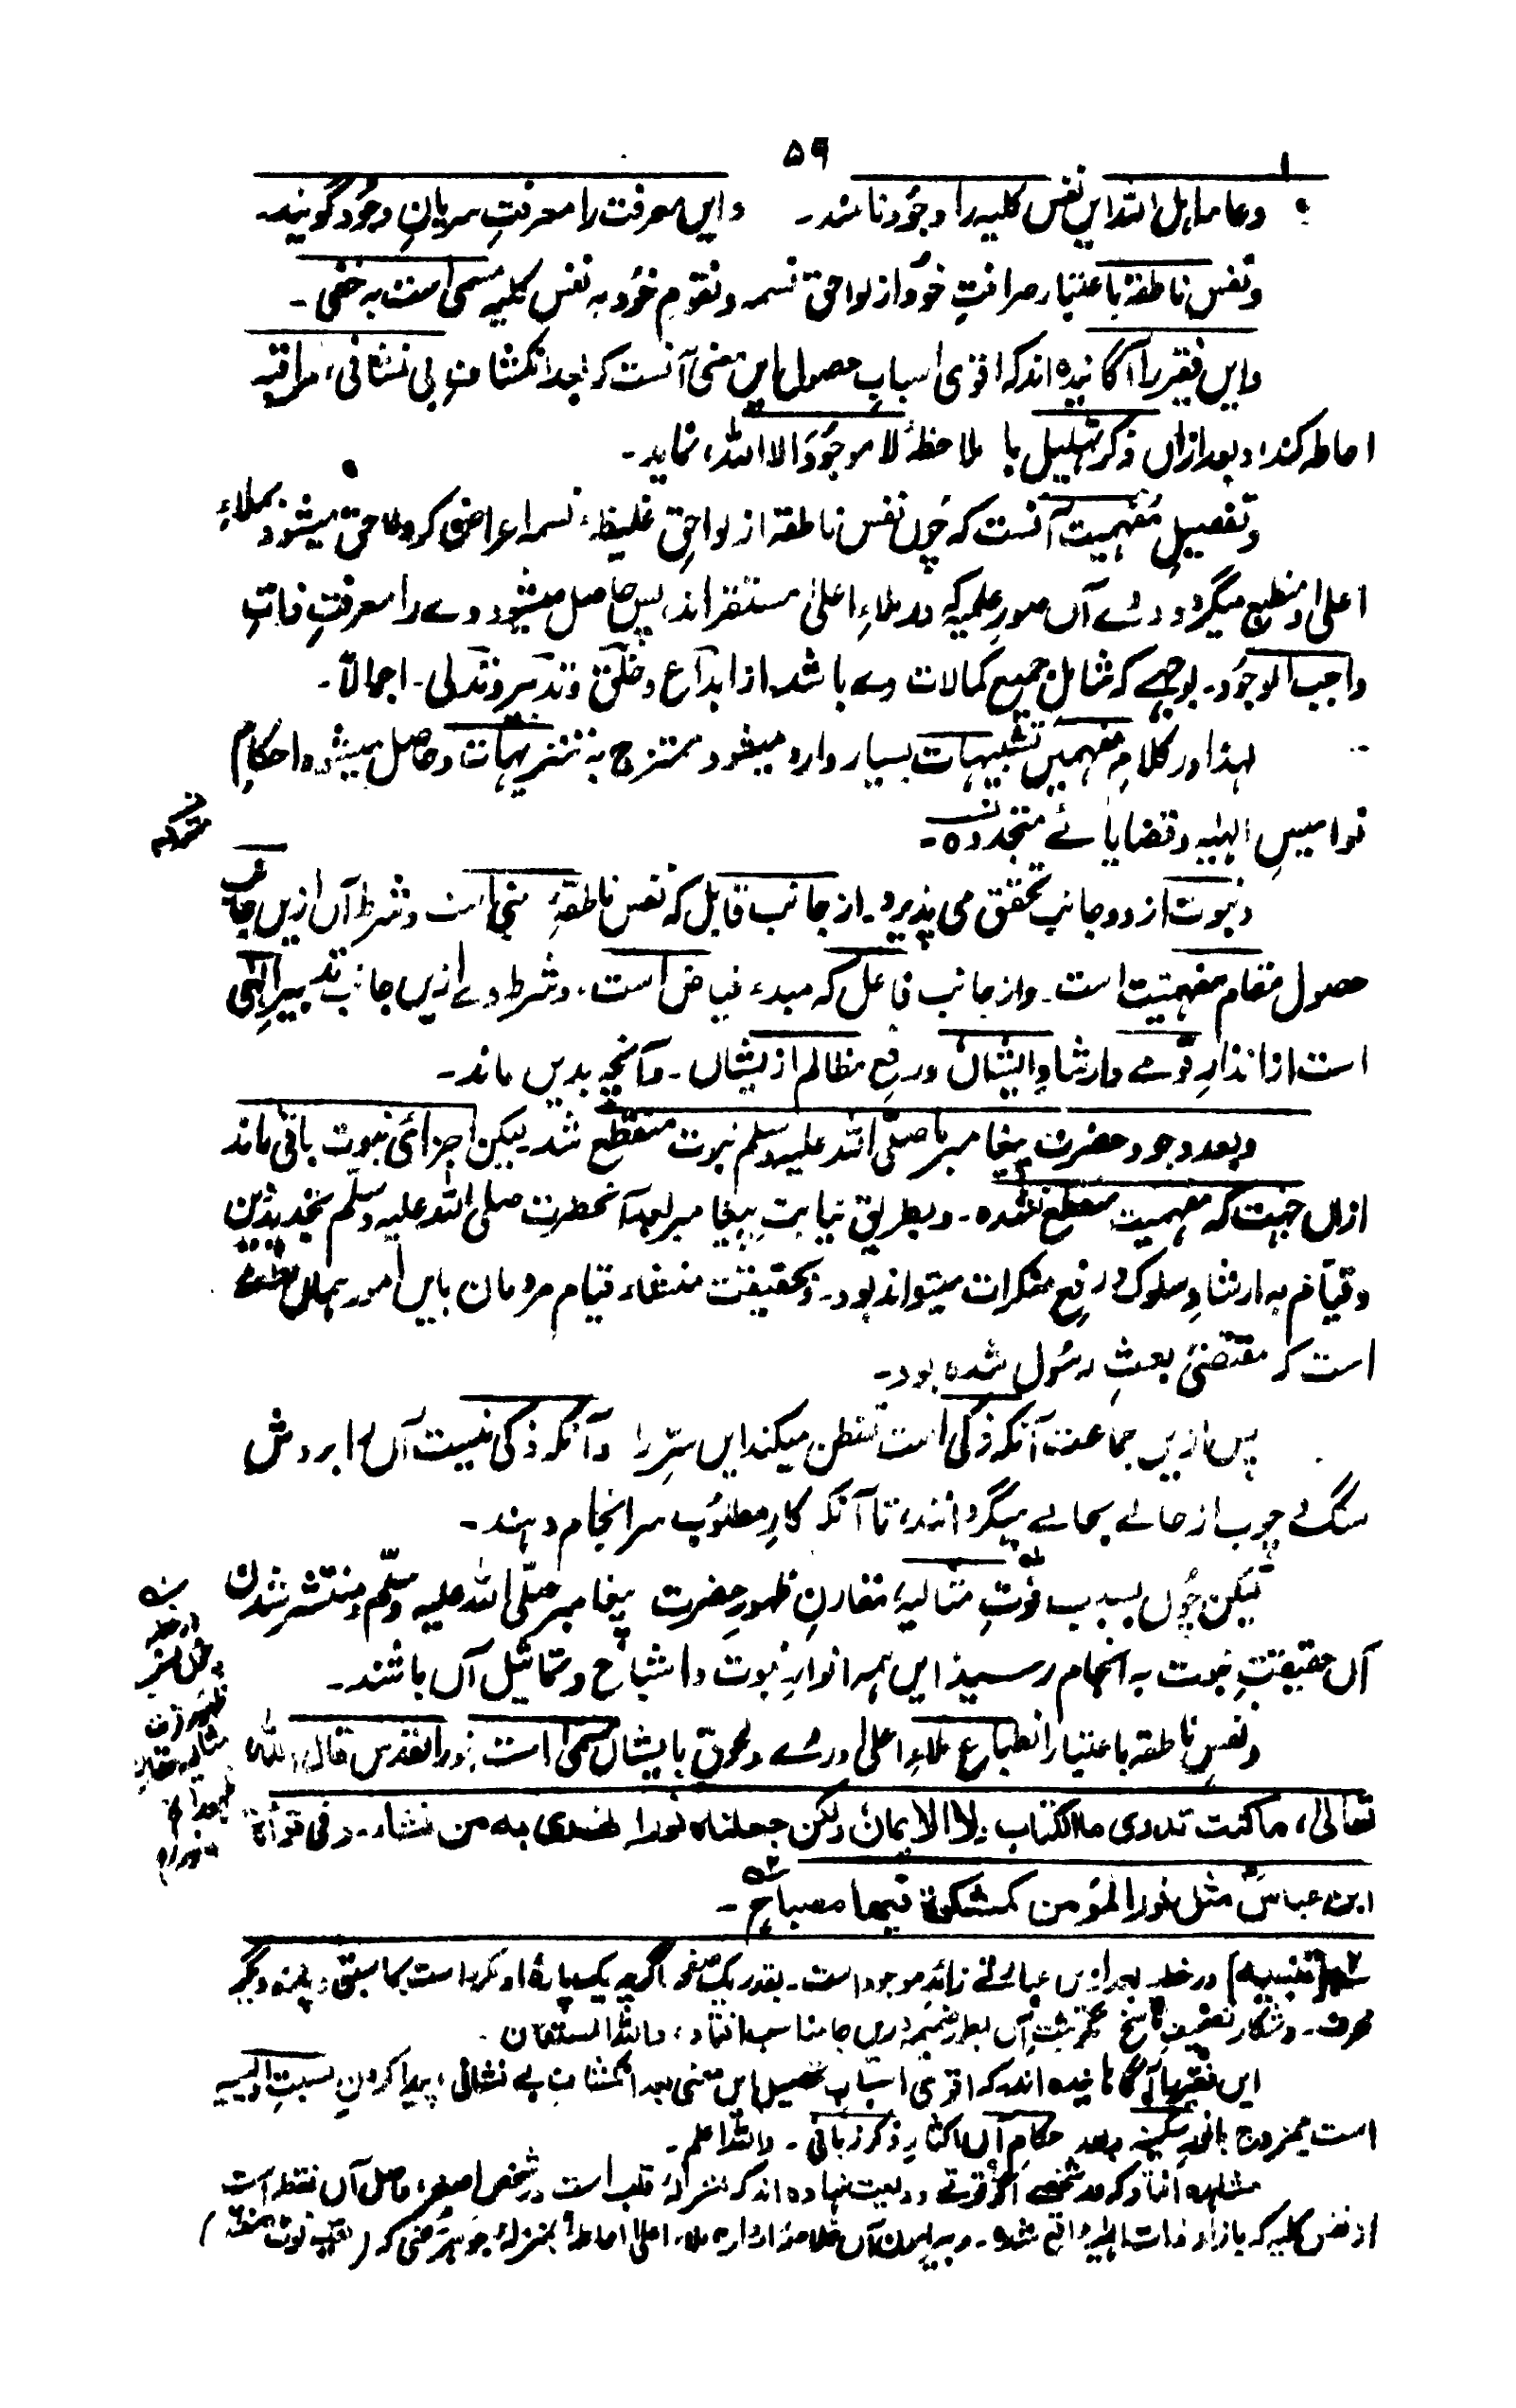 ۵۹
وعامہ اہل اللہ ایں نفس کلیہ را وجُود نامند۔ وایں معرفت را معرفتِ سریانِ وجُود گویند۔
ونفس ناطقہ باعتبار صرافتِ خوُد از لواحق نسمہ وتقوم خوُد بہ نفس کلیہ مسمی است بہ خفی۔
وایں فقیر را آگانیدہ اند کہ اقوی اسبابِ حصول ایں معنی آنست کہ بعد انکشافِ بی نشانی، مراقبہ
احاطہ کند، وبعد ازاں ذکر تہلیل با ملاحظہٴ لا موجُودَ الا اللہ، نماید۔
وتفصیلِ مُفہمیت آنست کہ چُوں نفس ناطقہ از لواحقِ غلیظہء نسمہ اعراض کرد ولاحق میشود بملاءِ
اعلیٰ ومنطبع میگردد در وے آں صورِ علمیہ کہ در ملاءِ اعلیٰ مستقر اند، پس حاصل میشود وے را معرفتِ ذاتِ
واجب الوجُود۔ بوجہے کہ شامل جمیع کمالات وے باشد، از ابداع وخلق وتدبیر وتدلی۔ اجمالاً۔
لہذا در کلامِ مفہمین تشبیہات بسیار وارد میشود ممتزج بہ تنزیہات وحاصل میشود احکامِ
نوامیسِ الہٰیہ وقضایائے متجددہ۔
ونبوت از دو جانب تحقق می پذیرد۔ از جانب قابل کہ نفس ناطقہٴ نبی است وشرط آں ازیں جانب
حصول مقام مفہمیّت است۔ واز جانب فاعل کہ مبدء فیاض است، وشرط وے ازیں جانب تدبیرِ الٰہی
است از انذارِ قومے وارشادِ ایشاں ورفعِ مظالم از یشاں۔ وآنچہ بدیں ماند۔
وبعد وجود حضرت پیغامبر ما صلّی اللہ علیہ وسلم نبوت منقطع شد۔ لیکن اجزائی نبوت باقی ماند
ازاں جہت کہ مفہمیت منقطع نشدہ۔ وبطریق نیابتِ پیغامبر بعد آنحضرت صلی اللہ علیہ وسلم تجدید دین
وقیام بہ ارشادِ سلوک ورفع منکرات میتواند بود۔ وبحقیقت منشاء قیام مردمان بایں امور ہماں
است کہ مقتضیٔ بعثِ رسُول شدہ بود۔
پس ازیں جماعت آنکہ ذکی است تفطن میکند ایں سرّ را وآنکہ ذکی نیست آں را بر روش
سنگ و چوب از حالے بحالے میگردانند، تا آنکہ کارِ مطلوُب سرانجام دہند۔
لیکن چُوں بسبب قوّتِ مثالیہ، مقارنِ ظہورِ حضرت پیغامبر صلّی اللہ علیہ وسلّم ومنتشر شدن
آں حقیقتِ نبوت بہ انجام رسید، ایں ہمہ انوارِ نبوت واشباح وتماثیل آں باشند۔
ونفسِ ناطقہ باعتبار انطباعِ ملاءِ اعلیٰ در وے ولحوق بایشاں مسمی است بنور القدس قال اللہ
تعالی، ما کنت تدری ما الکتاب ولا الایمان ولکن جعلناہ نورا نھدی بہ من نشاء۔ وفی قرأۃ
ابن عباسؓ مثل نور المؤمن کمشکوۃ فیھا مصباح۔
[تنبیہ] در خطبہ بعد ازیں عبارتے زائد موجود است۔ بقدر یک صفحہ اگرچہ یک پارۂ او مکرر است کما سبق، وپارہ دیگر
محرف۔ وشکار تصحیف ناسخ مگر ثبتِ آں بطور ضمیمہ دریں جا مناسب افتاد، واللہ المستعان۔
ایں فقیر را آگاہانیدہ اند کہ اقویٰ اسباب تحصیل ایں معنی بعد انکشافِ بے نشانی، پیدا کردنِ نسبتِ اویسیہ
است ممزوج بانورِ سکینہ وبعد احکامِ آں اکثارِ ذکر زبانی۔ واللہ اعلم۔
مشاہدہ افتاد کہ در شخصے اکبر قوتے ودیعت نہادہ اند کہ بمنزلۂ قلب است در شخص اصغر، واصل آں نقطہ است
از نفس کلیہ کہ بازاء ذات الٰہیہ واقع شدہ۔